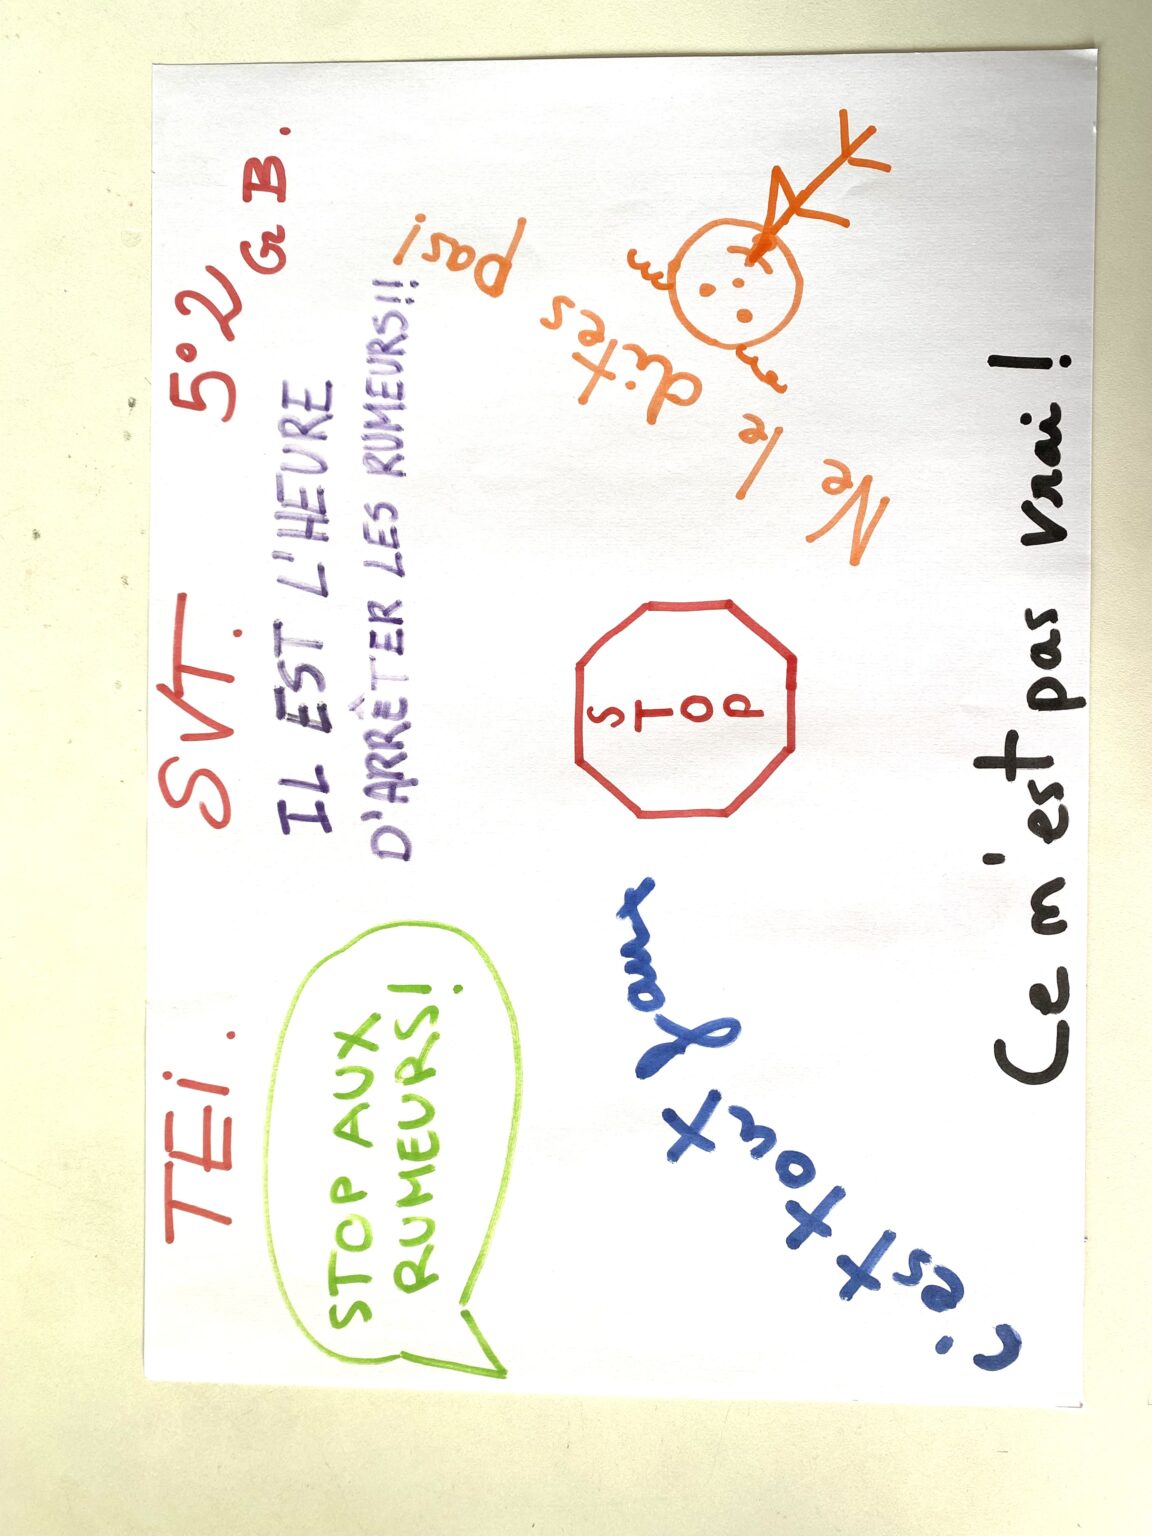 TEi. SVT. 5°2
Gr B.
STOP AUX
RUMEURS!
IL EST L'HEURE
D'ARRÊTER LES RUMEURS!!
c'est tout faux
S
T
O
P
Ne le dites pas!
Ce m'est pas vrai!